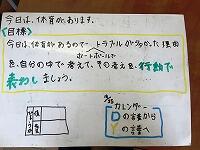 今日は、体育があります。
《目標》
今日は、体育があるので、トラブルが少なかった理由
ポートボールで
を、自分の中で考えて、その考えを、行動で
表わしましょう。
カレンダー
Dの言葉から
Yの言葉へ